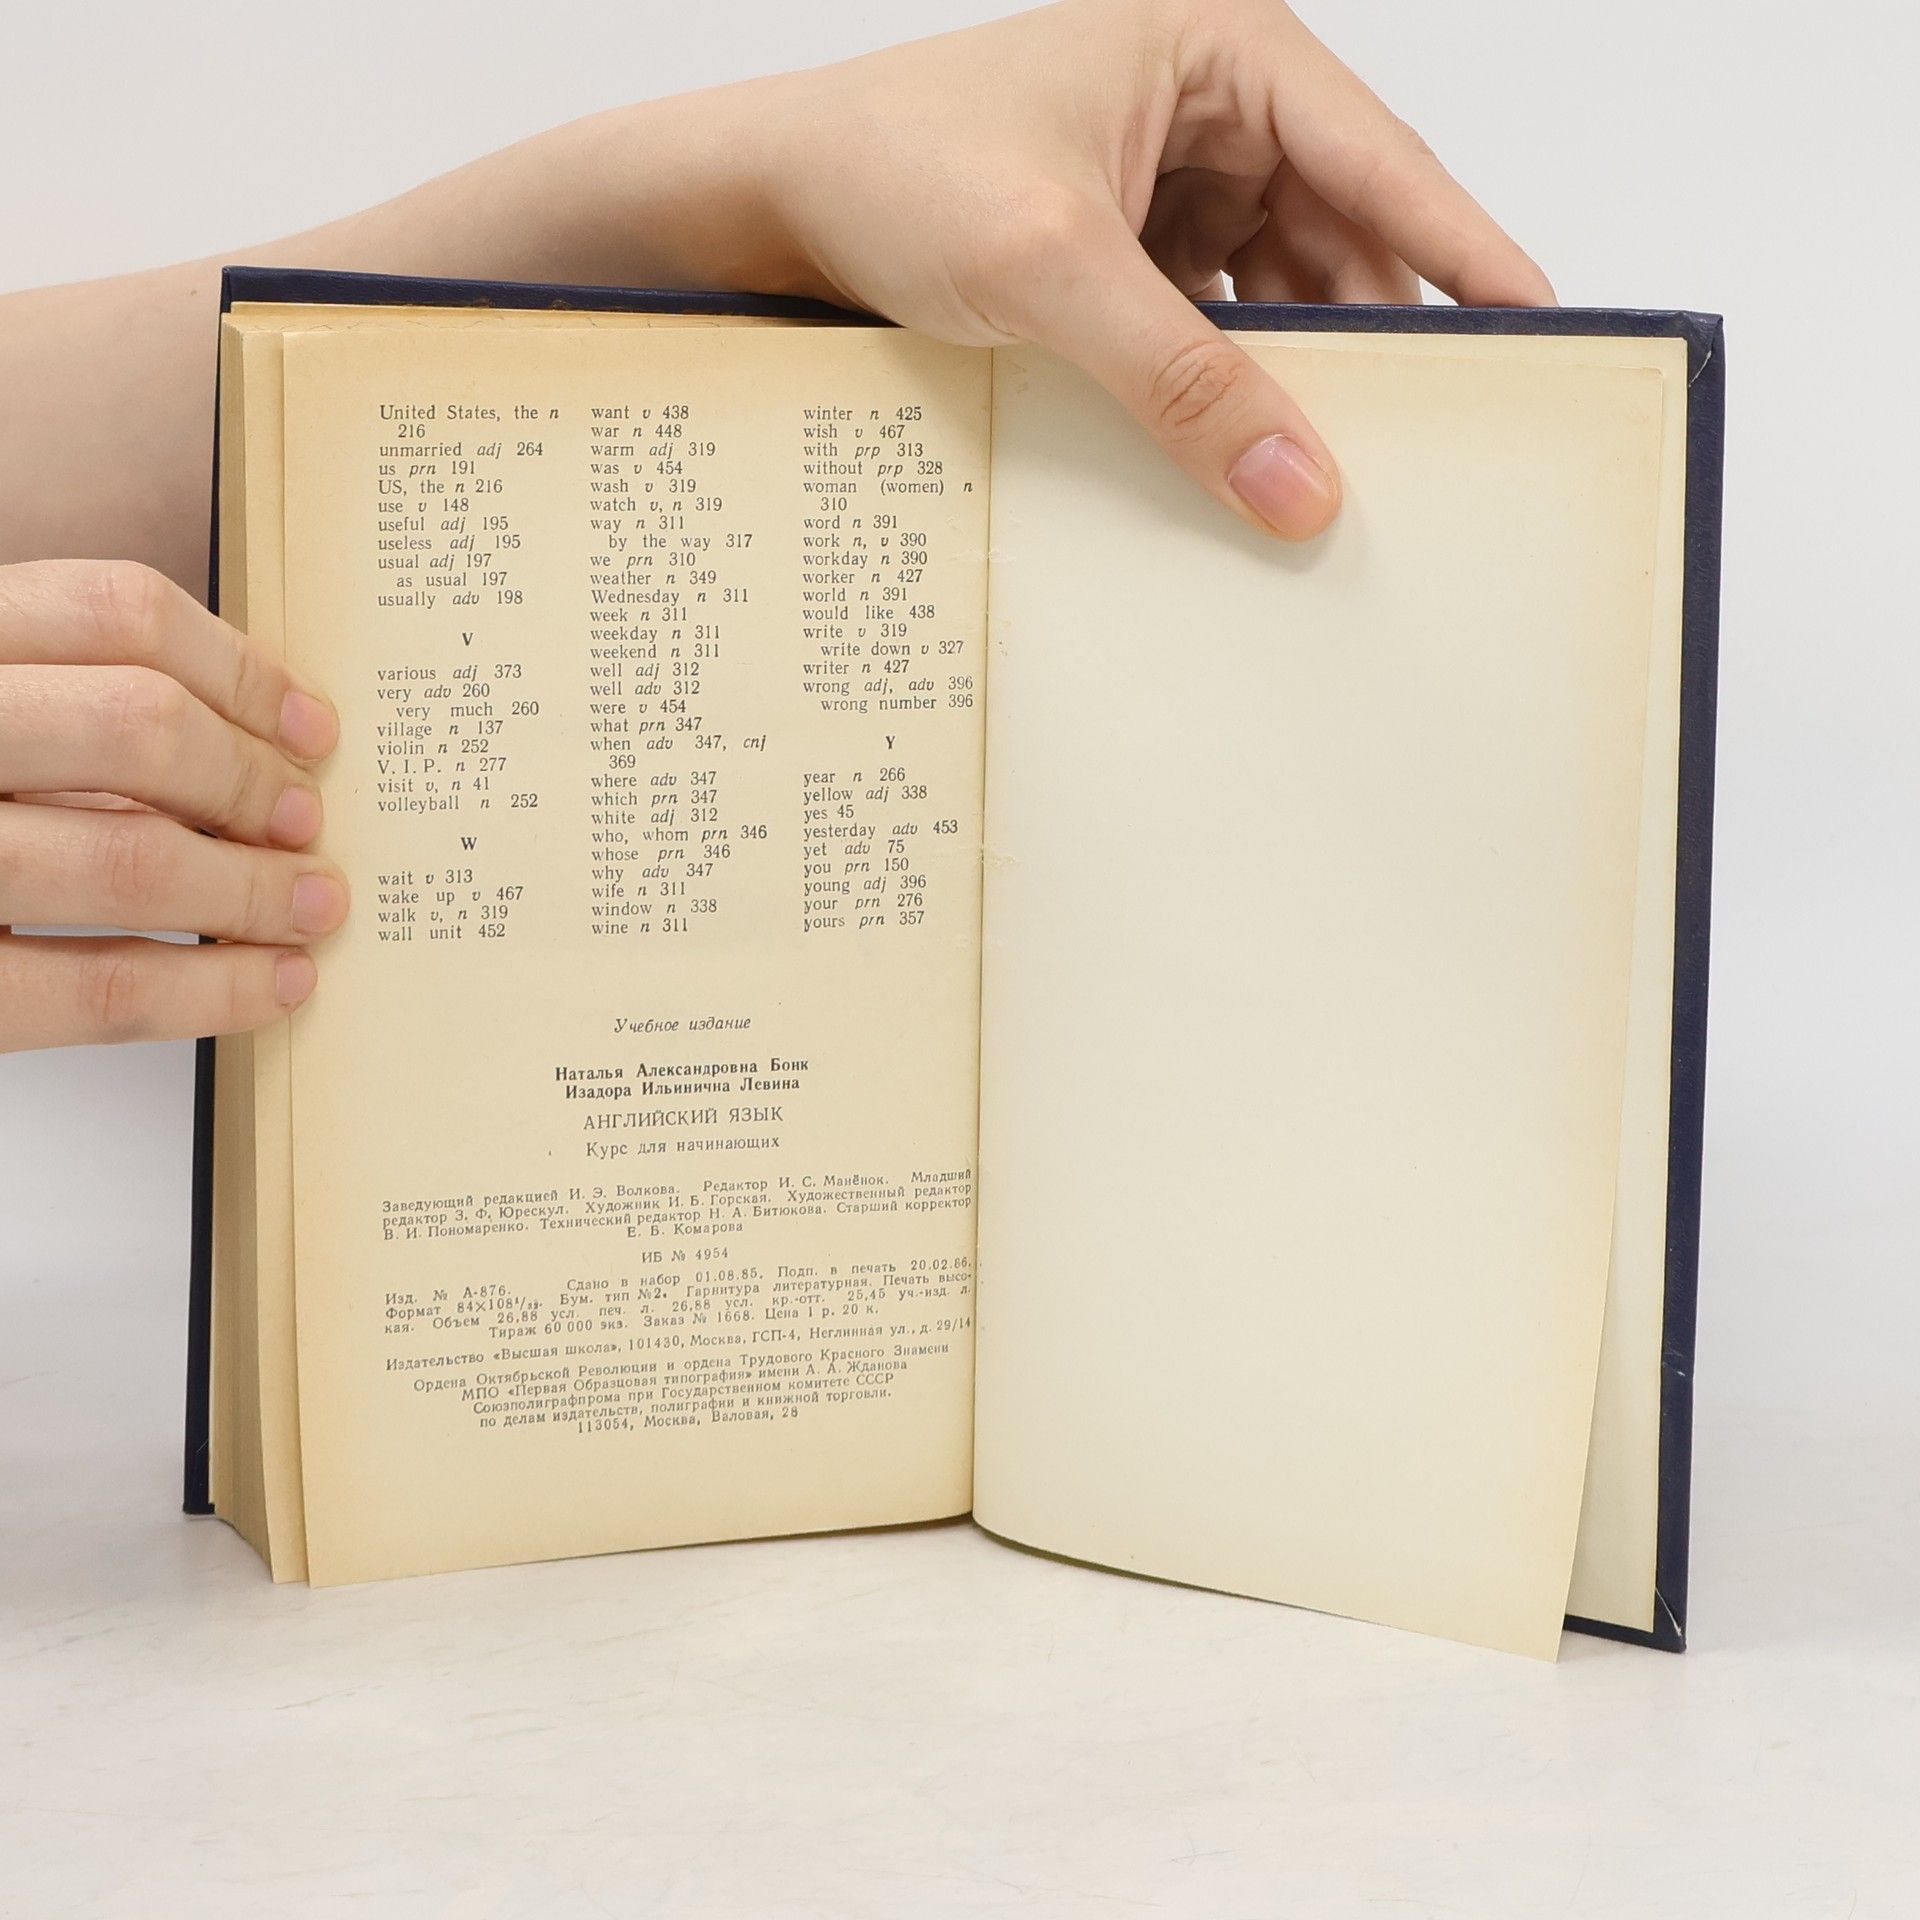 United States, the n
216
unmarried adj 264
us prn 191
US, the n 216
use v 148
useful adj 195
useless adj 195
usual adj 197
as usual 197
usually adv 198
V
various adj 373
very adv 260
very much 260
village n 137
violin n 252
V. I. P. n 277
visit v, n 41
volleyball n 252
W
wait v 313
wake up v 467
walk v, n 319
wall unit 452
want v 438
war n 448
warm adj 319
was v 454
wash v 319
watch v, n 319
way n 311
by the way 317
we prn 310
weather n 349
Wednesday n 311
week n 311
weekday n 311
weekend n 311
well adj 312
well adv 312
were v 454
what prn 347
when adv 347, cnj
369
where adv 347
which prn 347
white adj 312
who, whom prn 346
whose prn 346
why adv 347
wife n 311
window n 338
wine n 311
winter n 425
wish v 467
with prp 313
without prp 328
woman (women) n
310
word n 391
work n, v 390
workday n 390
worker n 427
world n 391
would like 438
write v 319
write down v 327
writer n 427
wrong adj, adv 396
wrong number 396
Y
year n 266
yellow adj 338
yes 45
yesterday adv 453
yet adv 75
you prn 150
young adj 396
your prn 276
yours prn 357
Учебное издание
Наталья Александровна Бонк
Изадора Ильинична Левина
АНГЛИЙСКИЙ ЯЗЫК
Курс для начинающих
Заведующий редакцией И. Э. Волкова. Редактор И. С. Манёнок. Младший
редактор З. Ф. Юрескул. Художник И. Б. Горская. Художественный редактор
В. И. Пономаренко. Технический редактор Н. А. Битюкова. Старший корректор
Е. Б. Комарова
ИБ № 4954
Изд. № А-876. Сдано в набор 01.08.85. Подп. в печать 20.02.86.
Формат 84×108¹/₃₂. Бум. тип №2. Гарнитура литературная. Печать высо-
кая. Объем 26,88 усл. печ. л. 26,88 усл. кр.-отт. 25,45 уч.-изд. л.
Тираж 60 000 экз. Заказ № 1668. Цена 1 р. 20 к.
Издательство «Высшая школа», 101430, Москва, ГСП-4, Неглинная ул., д. 29/14
Ордена Октябрьской Революции и ордена Трудового Красного Знамени
МПО «Первая Образцовая типография» имени А. А. Жданова
Союзполиграфпрома при Государственном комитете СССР
по делам издательств, полиграфии и книжной торговли.
113054, Москва, Валовая, 28